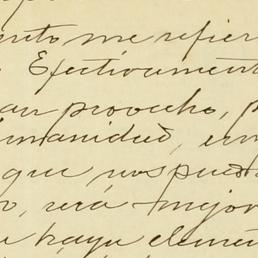 me refier
Efectivament
provecho,
que nos pued
será mejor
haya elemen